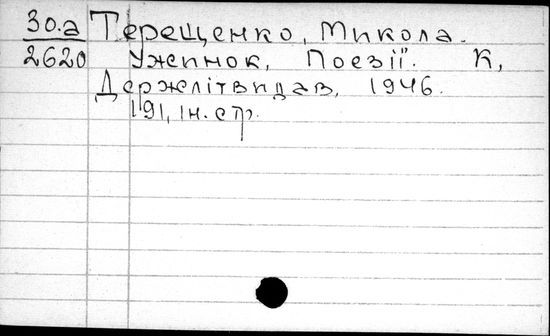 30.а Терещенко, Микола.
2620 Ужинок, Поезії. К,
Держлітвидав, 1946.
191, Iн. стр.